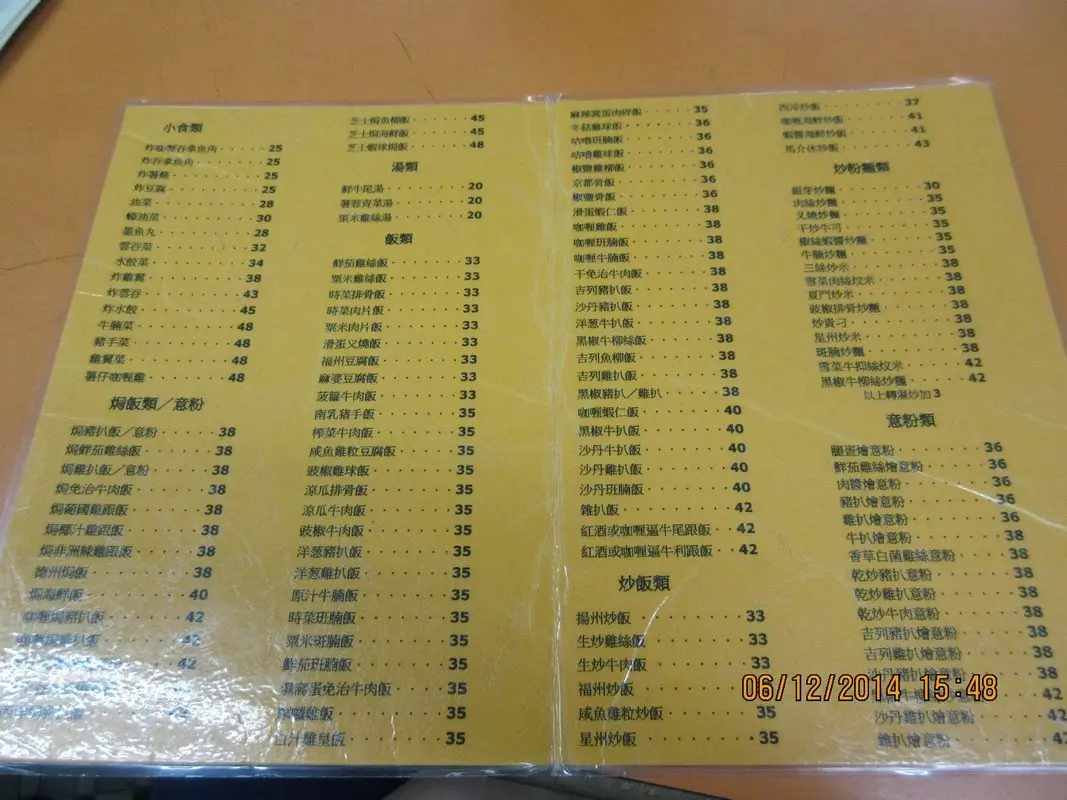 小食類
炸咖喱吞拿魚角 25
炸吞拿魚角 25
炸薯條 25
炸豆腐 25
油菜 28
蠔油菜 30
墨魚丸 28
雲吞菜 32
水餃菜 34
炸雞翼 38
炸雲吞 43
炸水餃 45
牛腩菜 48
豬手菜 48
雞翼菜 48
薯仔咖喱雞 48
焗飯類／意粉
焗豬扒飯／意粉 38
焗鮮茄雞絲飯 38
焗雞扒飯／意粉 38
焗免治牛肉飯 38
焗葡國雞跟飯 38
焗椰汁雞跟飯 38
焗非洲辣雞跟飯 38
德州焗飯 38
焗海鮮飯 40
咖喱焗豬扒飯 42
咖喱焗雞扒飯 42
42
芝士焗魚柳飯 45
芝士焗海鮮飯 45
芝士蝦球焗飯 48
湯類
鮮牛尾湯 20
薯蓉青菜湯 20
粟米雞絲湯 20
飯類
鮮茄雞絲飯 33
粟米雞絲飯 33
時菜排骨飯 33
時菜肉片飯 33
粟米肉片飯 33
滑蛋叉燒飯 33
福州豆腐飯 33
麻婆豆腐飯 33
菠蘿牛肉飯 33
南乳豬手飯 35
榨菜牛肉飯 35
咸魚雞粒豆腐飯 35
豉椒雞球飯 35
涼瓜排骨飯 35
涼瓜牛肉飯 35
豉椒牛肉飯 35
洋葱豬扒飯 35
洋葱雞扒飯 35
原汁牛腩飯 35
時菜班腩飯 35
粟米斑腩飯 35
鮮茄班腩飯 35
窩蛋免治牛肉飯 35
雞飯 35
白汁雞皇飯 35
麻辣窩蛋肉碎飯 35
冬菇雞球飯 36
咕嚕班腩飯 36
咕嚕雞球飯 36
椒鹽雞柳飯 36
京都骨飯 36
椒鹽骨飯 36
滑蛋蝦仁飯 38
咖喱雞飯 38
咖喱班腩飯 38
咖喱牛腩飯 38
干免治牛肉飯 38
吉列豬扒飯 38
沙丹豬扒飯 38
洋葱牛扒飯 38
黑椒牛柳絲飯 38
吉列魚柳飯 38
吉列雞扒飯 38
黑椒豬扒／雞扒 38
咖喱蝦仁飯 40
黑椒牛扒飯 40
沙丹牛扒飯 40
沙丹雞扒飯 40
沙丹班腩飯 40
雜扒飯 42
紅酒或咖喱逼牛尾跟飯 42
紅酒或咖喱逼牛利跟飯 42
炒飯類
揚州炒飯 33
生炒雞絲飯 33
生炒牛肉飯 33
福州炒飯
咸魚雞粒炒飯 35
星州炒飯 35
西洋炒飯 37
咖喱海鮮炒飯 41
蝦醬海鮮炒飯 41
馬介休炒飯 43
炒粉麵類
銀芽炒麵 30
肉絲炒麵 35
叉燒炒麵 35
干炒牛可 35
椒絲蝦醬炒麵 35
牛腩炒麵 35
三絲炒米 38
雪菜肉絲炆米 38
夏門炒米 38
豉椒排骨炒麵 38
炒貴刁 38
星州炒米 38
斑腩炒麵 38
雪菜牛抑絲炆米 42
黑椒牛柳絲炒麵 42
以上轉濕炒加 3
意粉類
腿蛋燴意粉 36
鮮茄雞絲燴意粉 36
肉醬燴意粉 36
豬扒燴意粉 36
雞扒燴意粉 36
牛扒燴意粉 38
香草白菌雞絲意粉 38
乾炒豬扒意粉 38
乾炒雞扒意粉 38
乾炒牛肉意粉 38
吉列豬扒燴意粉 38
吉列雞扒燴意粉 38
沙丹豬扒燴意粉 38
意粉 42
沙丹雞扒燴意粉 42
雜扒燴意粉
06/12/2014 15:48